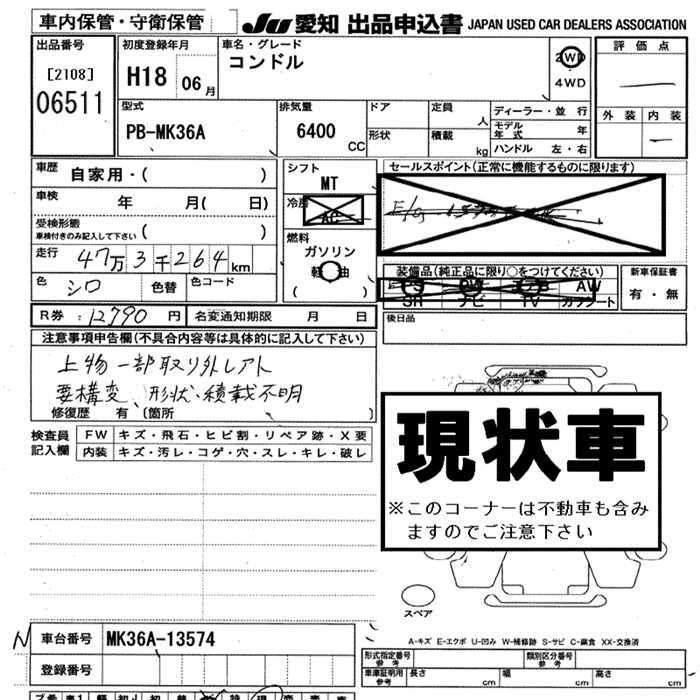 車内保管・守衛保管 JU 愛知 出品申込書 JAPAN USED CAR DEALERS ASSOCIATION
出品番号 初度登録年月 車名・グレード 評価点
[2108] H18 06月 コンドル 2WD
06511 4WD
外装 内装
型式 排気量 ドア 定員 人 ディーラー・並行
PB-MK36A 6400 CC 形状 積載 kg モデル年式 年
ハンドル 左・右
車歴 自家用・( ) シフト セールスポイント(正常に機能するものに限ります)
MT
車検 年 月( 日) 冷房
AC
受検形態 ( )
車検付きのみ記入して下さい
燃料
ガソリン
走行 47万3千264km 軽油
( )
装備品(純正品に限り○をつけてください) 新車保証書
色 シロ 色替 色コード PS PW AW
SR ナビ TV 有・無
R券: 12790円 名変通知期限 月 日 後日品
注意事項申告欄(不具合内容等は具体的に記入して下さい)
上物一部取り外しアト
要構変、形状・積載不明
修復歴 有 (箇所 )
検査員 FW キズ・飛石・ヒビ割・リペア跡・X要
記入欄 内装 キズ・汚レ・コゲ・穴・スレ・キレ・破レ
現状車
※このコーナーは不動車も含み
ますのでご注意下さい
スペア
A-キズ E-エクボ U-凹み W-補修跡 S-サビ C-腐食 XX-交換済
N 車台番号 MK36A-13574
登録番号
形式指定番号 参考 類別区分番号 参考
車庫証明用 参考 長さ cm 幅 cm 高さ cm